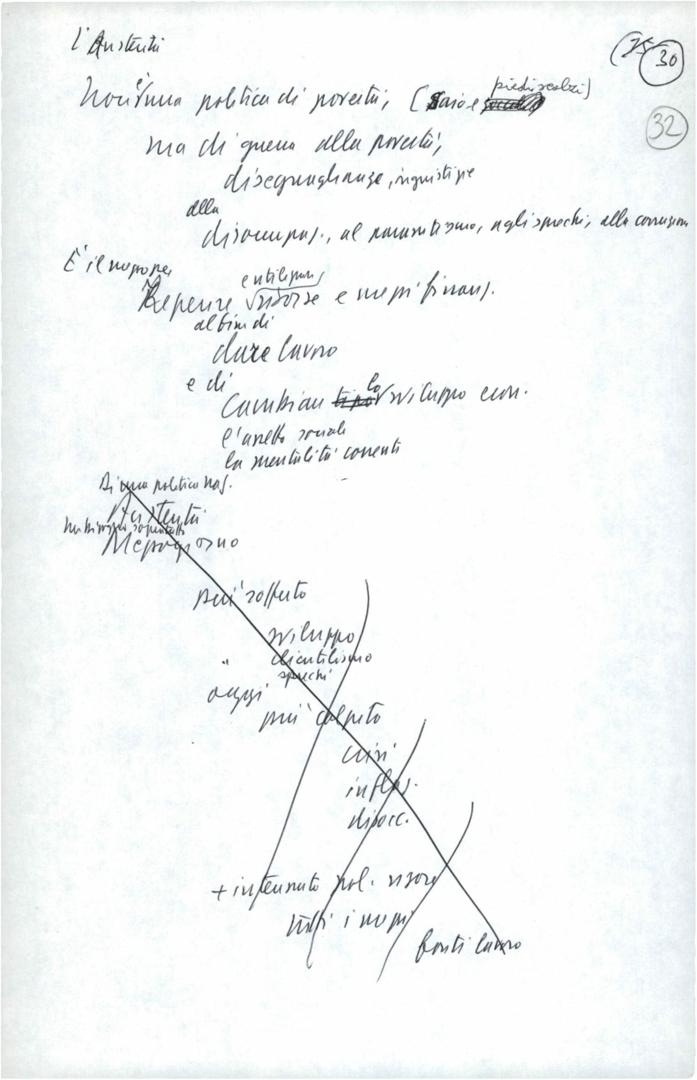 L'Austerità
(75 30
32
Non è una politica di povertà, (saio e piedi scalzi)
ma di guerra alla povertà,
diseguaglianze, ingiustizie
alla
disoccupaz., al parassitismo, agli sprechi, alla corruzione
È il mezzo per
Reperire e utilizzare risorse e mezzi finanz.
al fine di
dare lavoro
e di
Cambiare tipo lo sviluppo econ.
l'assetto sociale
la mentalità correnti
Di una politica naz.
Austerità
Mezzogiorno
più sofferto
sviluppo
" clientelismo
sprechi
oggi
più colpito
crisi
inflaz.
disocc.
+ interessato pol. risorse
tutti i mezzi
fonti lavoro